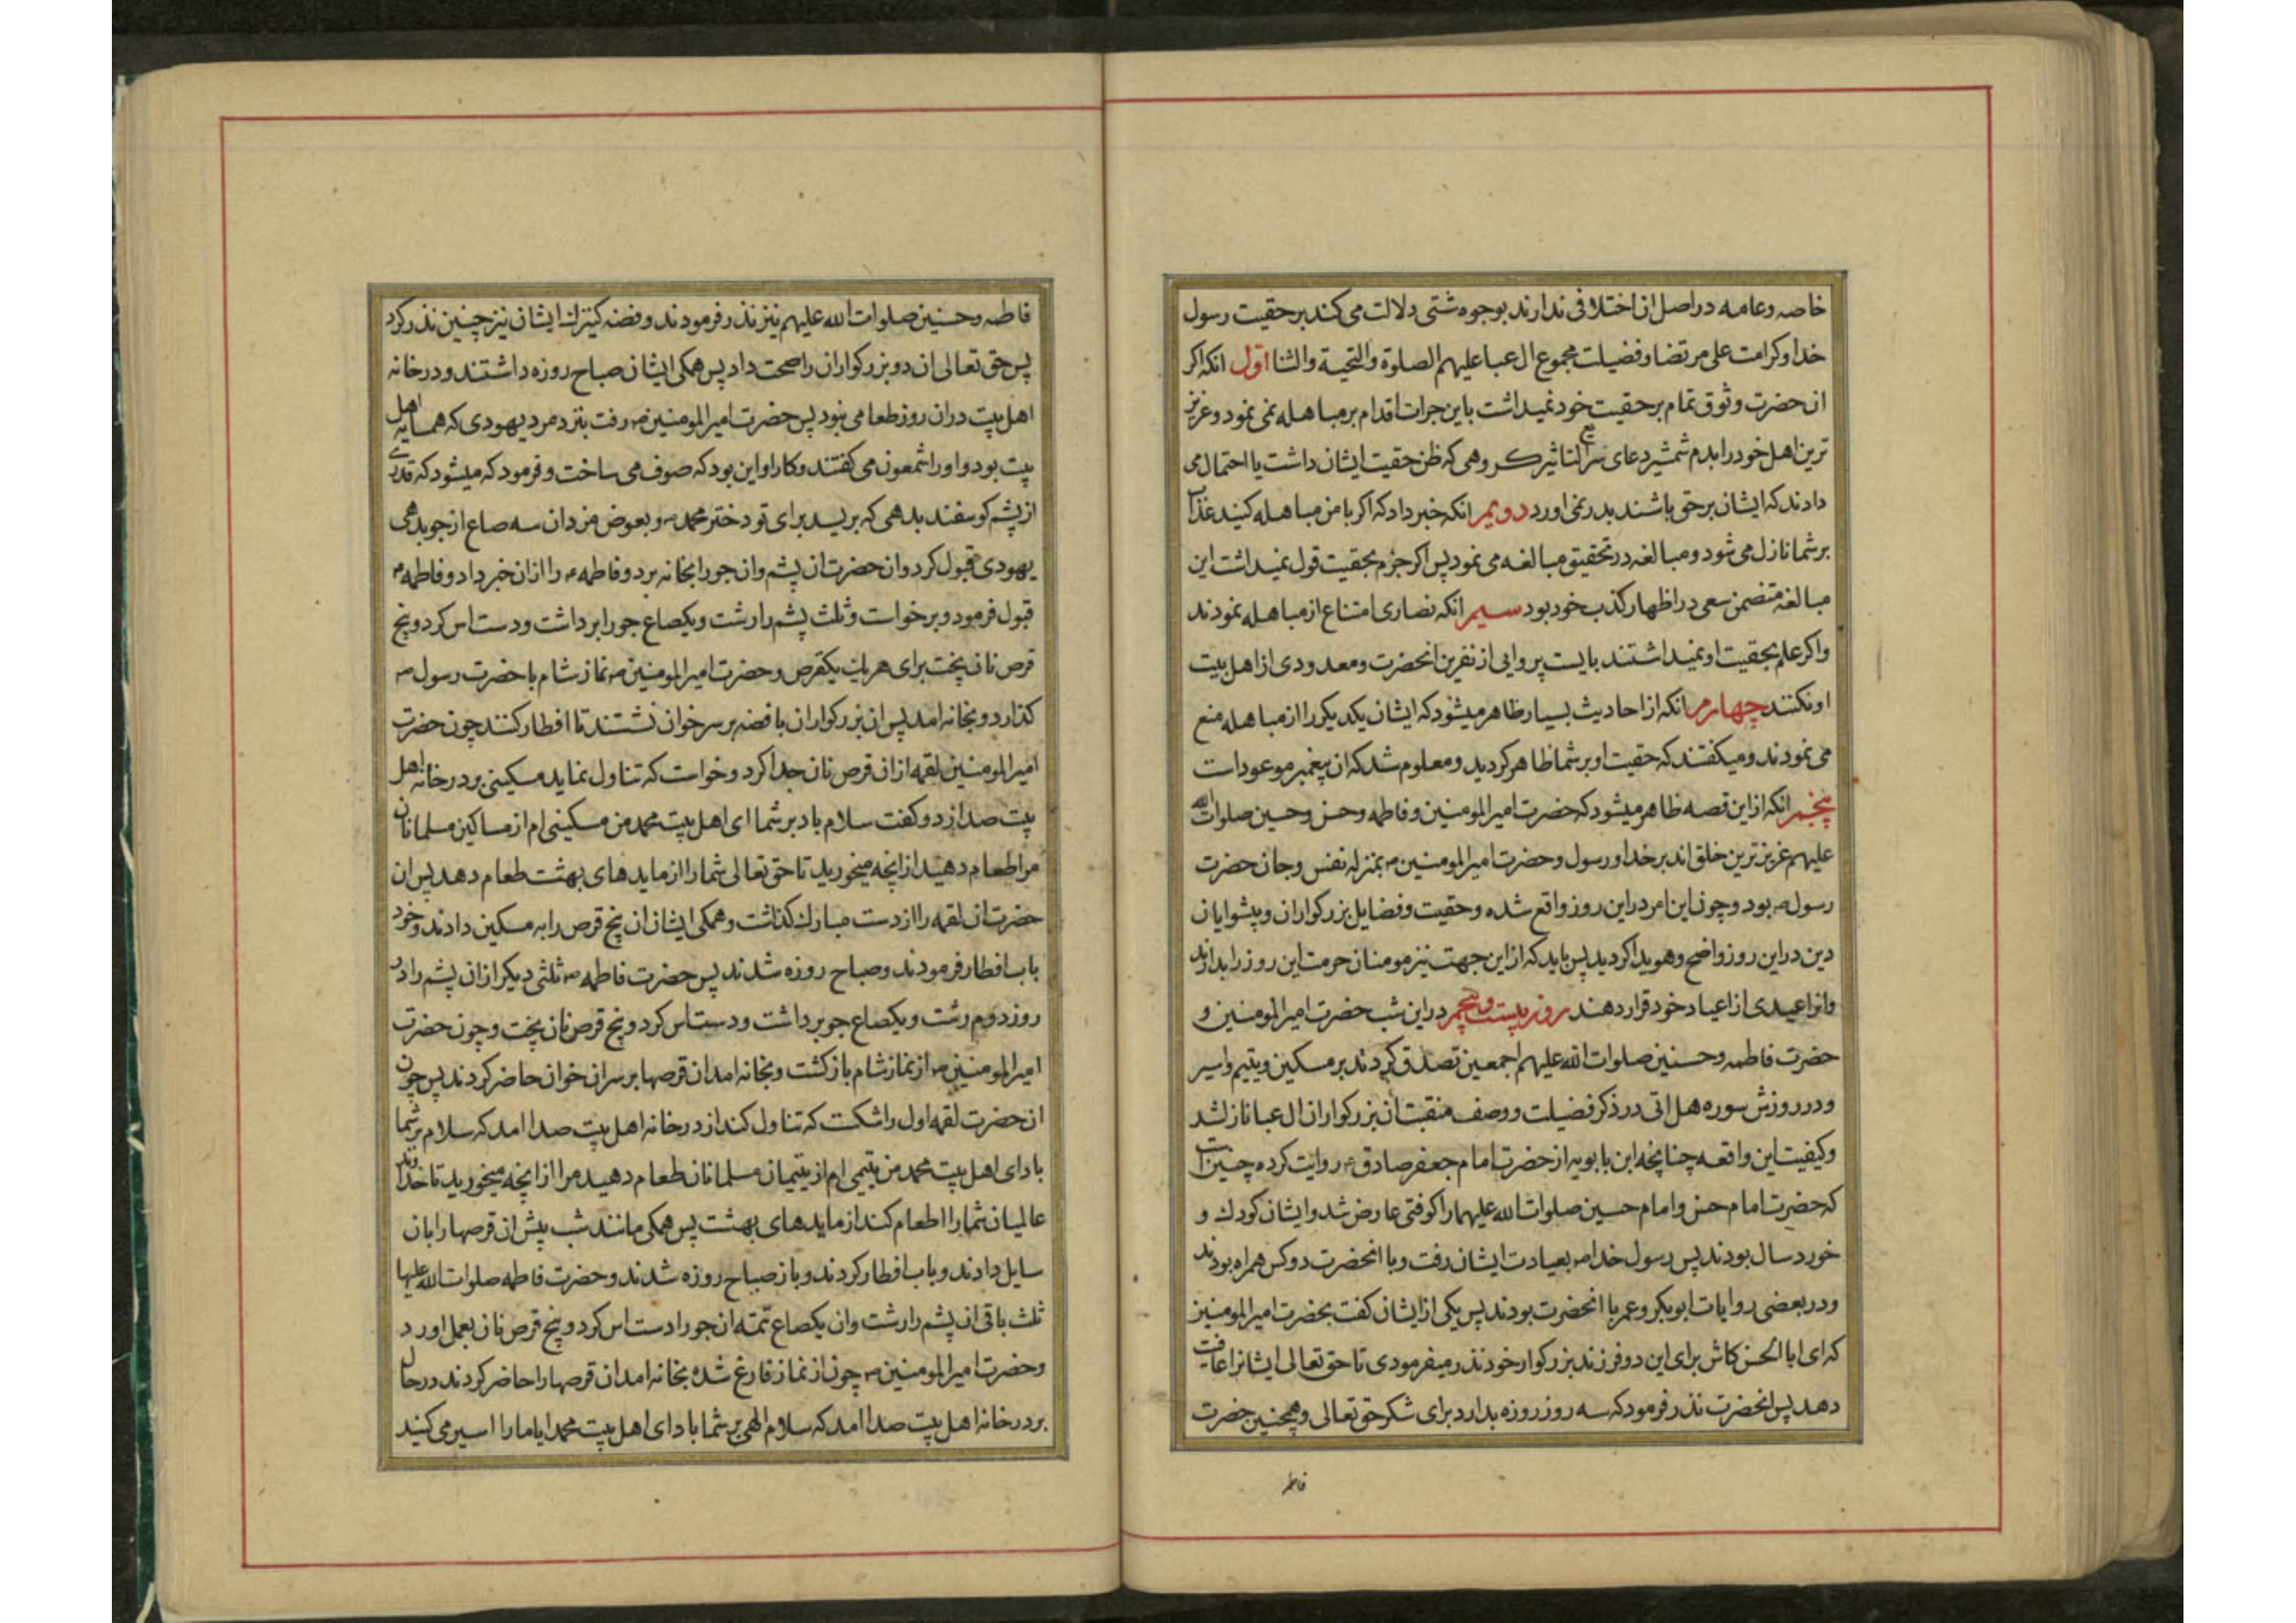 خاصه و عامه در اصل ان اختلافی ندارند بوجوه شتی دلالت می کند بر حقیت رسول
خدا و کرامت علی مرتضا و فضیلت مجموع ال عبا علیهم الصلوة والتحیة والثنا اول انکه اکر
ان حضرت وثوق تمام بر حقیت خود نمیداشت باین جرات اقدام بر مباهله نمی نمود و عزیز
ترین اهل خود را بدم شمشیر دعای سریع التاثیر کروهی که ظن حقیت ایشان داشت یا احتمال می
دادند که ایشان بر حق باشند بدر نمی اورد دویم انکه خبر داد که اکر با من مباهله کنید عذاب
بر شما نازل می شود و مبالغه در تحقیق مبالغه می نمود پس اکر جزم بحقیت قول نمیداشت این
مبالغه متضمن سعی در اظهار کذب خود بود سیم انکه نصاری امتناع از مباهله نمودند
واکر علم بحقیت او نمیداشتند بایست پروایی از نفرین انحضرت ومعدودی از اهل بیت
او نکنند چهارم انکه از احادیث بسیار ظاهر میشود که ایشان یکدیکر را از مباهله منع
می نمودند و میکفتند که حقیت او بر شما ظاهر کردید و معلوم شد که ان پیغمبر موعود است
پنجم انکه از این قصه ظاهر میشود که حضرت امیرالمومنین و فاطمه و حسن و حسین صلوات الله
علیهم عزیز ترین خلق اند بر خدا و رسول و حضرت امیرالمومنین ع بمنزله نفس و جان حضرت
رسول ص بود و چون این امر در این روز واقع شده و حقیت و فضایل بزرکواران و پیشوایان
دین در این روز واضح و هویدا کردید پس باید که از این جهت نیز مومنان حرمت این روز را بدارند
وانرا عیدی از اعیاد خود قرار دهند روز بیست و پنجم در این شب حضرت امیرالمومنین و
حضرت فاطمه و حسنین صلوات الله علیهم اجمعین تصدق کردند بر مسکین و یتیم و اسیر
و در روزش سوره هل اتی در ذکر فضیلت و وصف منقبت ان بزرکواران ال عبا نازل شد
وکیفیت این واقعه چنانچه ابن بابویه از حضرت امام جعفر صادق ع روایت کرده چنین است
که حضرت امام حسن و امام حسین صلوات الله علیهما را کوفتی عارض شد و ایشان کودک و
خورد سال بودند پس رسول خدا ص بعیادت ایشان رفت و با انحضرت دو کس همراه بودند
و در بعضی روایات ابوبکر و عمر با انحضرت بودند پس یکی از ایشان کفت بحضرت امیرالمومنین
که ای ابا الحسن کاش برای این دو فرزند بزرکوار خود نذر میفرمودی تا حق تعالی ایشانرا عافیت
دهد پس انحضرت نذر فرمود که سه روز روزه بدارد برای شکر حق تعالی و همچنین حضرت
فاطمه
فاطمه و حسنین صلوات الله علیهم نیز نذر فرمودند و فضه کنیزک ایشان نیز چنین نذر کرد
پس حق تعالی ان دو بزرکواران را صحت داد پس همکی ایشان صباح روزه داشتند و در خانه
اهل بیت دران روز طعامی نبود پس حضرت امیرالمومنین ع رفت بنزد مرد یهودی که همسایه اهل
بیت بود و او را شمعون می کفتند و کار او این بود که صوف می ساخت و فرمود که میشود که قدری
از پشم کوسفند بدهی که بریسد برای تو دختر محمد ص و بعوض مزد ان سه صاع از جو بدهی
یهودی قبول کرد و ان حضرت ان پشم و ان جو را بخانه برد و فاطمه ع را از ان خبر داد و فاطمه ع
قبول فرمود و برخواست و ثلث پشم را رشت و یکصاع جو را برداشت و دست اس کرد و پنج
قرص نان پخت برای هر یک یکقرص و حضرت امیرالمومنین ع نماز شام با حضرت رسول ص
کذارد و بخانه امد پس ان بزرکواران با فضه بر سر خوان نشستند تا افطار کنند چون حضرت
امیرالمومنین لقمه از ان قرص نان جدا کرد و خواست که تناول نماید مسکینی بر در خانه اهل
بیت صدا زد و کفت سلام باد بر شما ای اهل بیت محمد من مسکینی ام از مساکین مسلمانان
مرا طعام دهید از انچه میخورید تا حق تعالی شما را از مایدهای بهشت طعام دهد پس ان
حضرت ان لقمه را از دست مبارک کذاشت و همکی ایشان ان پنج قرص را به مسکین دادند و خود
باب افطار فرمودند و صباح روزه شدند پس حضرت فاطمه ع ثلثی دیکر از ان پشم را در
روز دوم رشت و یکصاع جو برداشت و دست اس کرد و پنج قرص نان پخت و چون حضرت
امیرالمومنین ع از نماز شام بازکشت و بخانه امد ان قرصها بر سر ان خوان حاضر کردند پس چون
ان حضرت لقمه اول را شکست که تناول کند از در خانه اهل بیت صدا امد که سلام بر شما
باد ای اهل بیت محمد من یتیمی ام از یتیمان مسلمانان طعام دهید مرا از انچه میخورید تا خداوند
عالمیان شما را اطعام کند از مایدهای بهشت پس همکی مانند شب پیش ان قرصها را بان
سایل دادند و باب افطار کردند و باز صباح روزه شدند و حضرت فاطمه صلوات الله علیها
ثلث باقی ان پشم را رشت و ان یکصاع تتمه ان جو را دست اس کرد و پنج قرص نان بعمل اورد
و حضرت امیرالمومنین ع چون از نماز فارغ شده بخانه امد ان قرصها را حاضر کردند در حال
بر در خانه اهل بیت صدا امد که سلام الهی بر شما باد ای اهل بیت محمد ایا ما را اسیر می کنید